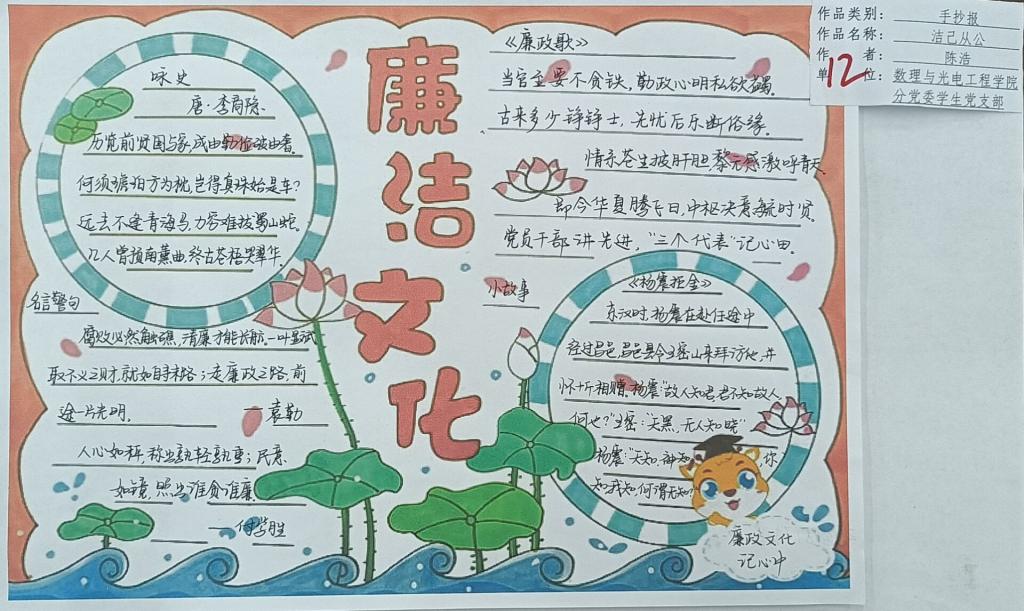 作品类别：手抄报
作品名称：洁己从公
作者：陈浩
单位：数理与光电工程学院
分党委学生党支部
12
廉洁文化
咏史
唐·李商隐
历览前贤国与家，成由勤俭破由奢。
何须琥珀方为枕，岂得真珠始是车？
远去不逢青海马，力穷难拔蜀山蛇。
几人曾预南薰曲，终古苍梧哭翠华。
名言警句
腐败必然触礁，清廉才能长航。一叶显斌
取不义之财，就如自寻末路；走廉政之路，前
途一片光明。
袁勤
人心如秤，称出孰轻孰重；民意
如镜，照出谁贪谁廉。
付学胜
《廉政歌》
当官至要不贪铁，勤政心明私欲蠲。
古来多少铮铮士，先忧后乐断俗缘。
情系苍生披肝胆，黎元感激呼青天。
即今华夏腾飞日，中枢决策统时贤。
党员干部讲先进，"三个代表"记心田。
小故事
《杨震拒金》
东汉时，杨震在赴任途中
经过昌邑，昌邑县令王密山来拜访他，并
怀十斤相赠。杨震："故人知君，君不知故人，
何也？"王密："天黑，无人知晓"
杨震："天知，神知，你
知，我知，何谓无知？
廉政文化
记心中